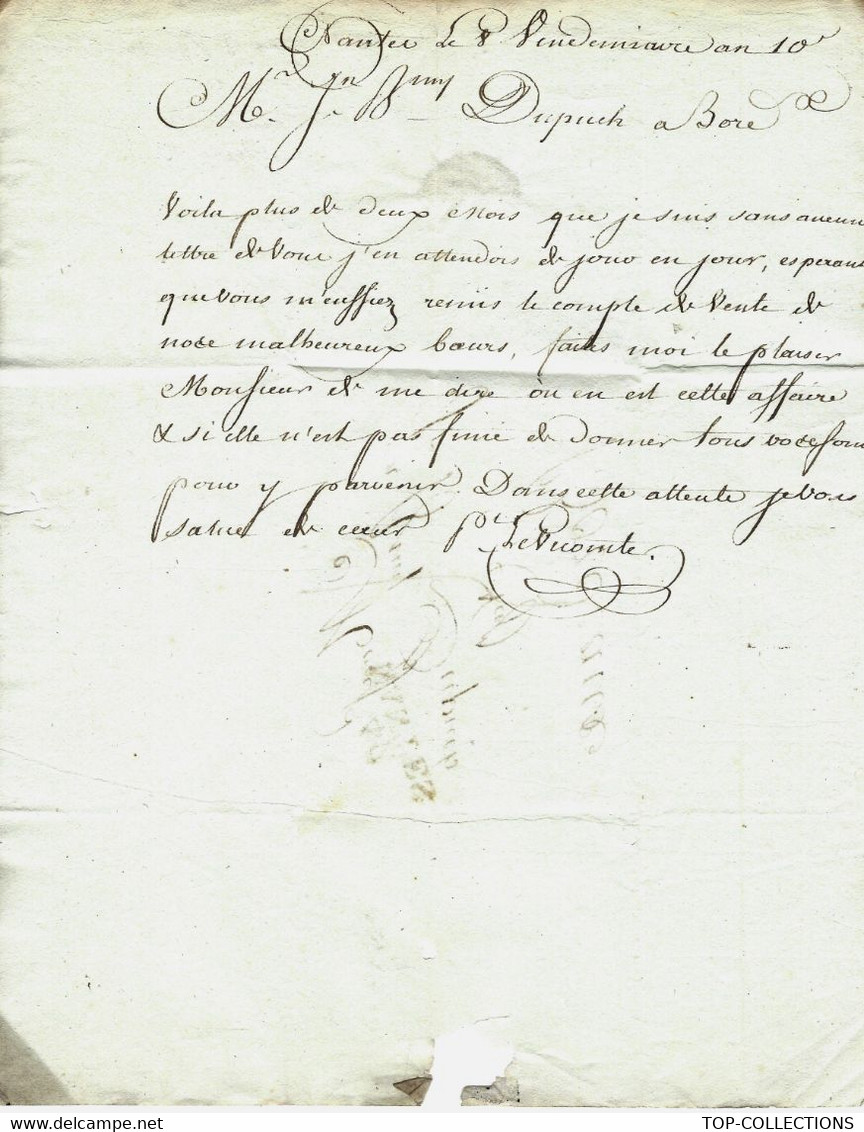 Nantes Le 8 Vendemiaire an 10e
Mr. Jn Bmy Dupuch a Bordx
Voila plus de deux mois que je suis sans aucune
lettre de vous j'en attendois de jour en jour, esperant
que vous m'eussiez remis le compte de vente de
notre malheureux bœufs, faites moi le plaisir
Monsieur de me dire où en est cette affaire
& si elle n'est pas finie de donner tous vos soins
pour y parvenir. Dans cette attente je vous
salue de cœur Pre LeVicomte.
NANTES
TOP-COLLECTIONS
www.delcampe.net